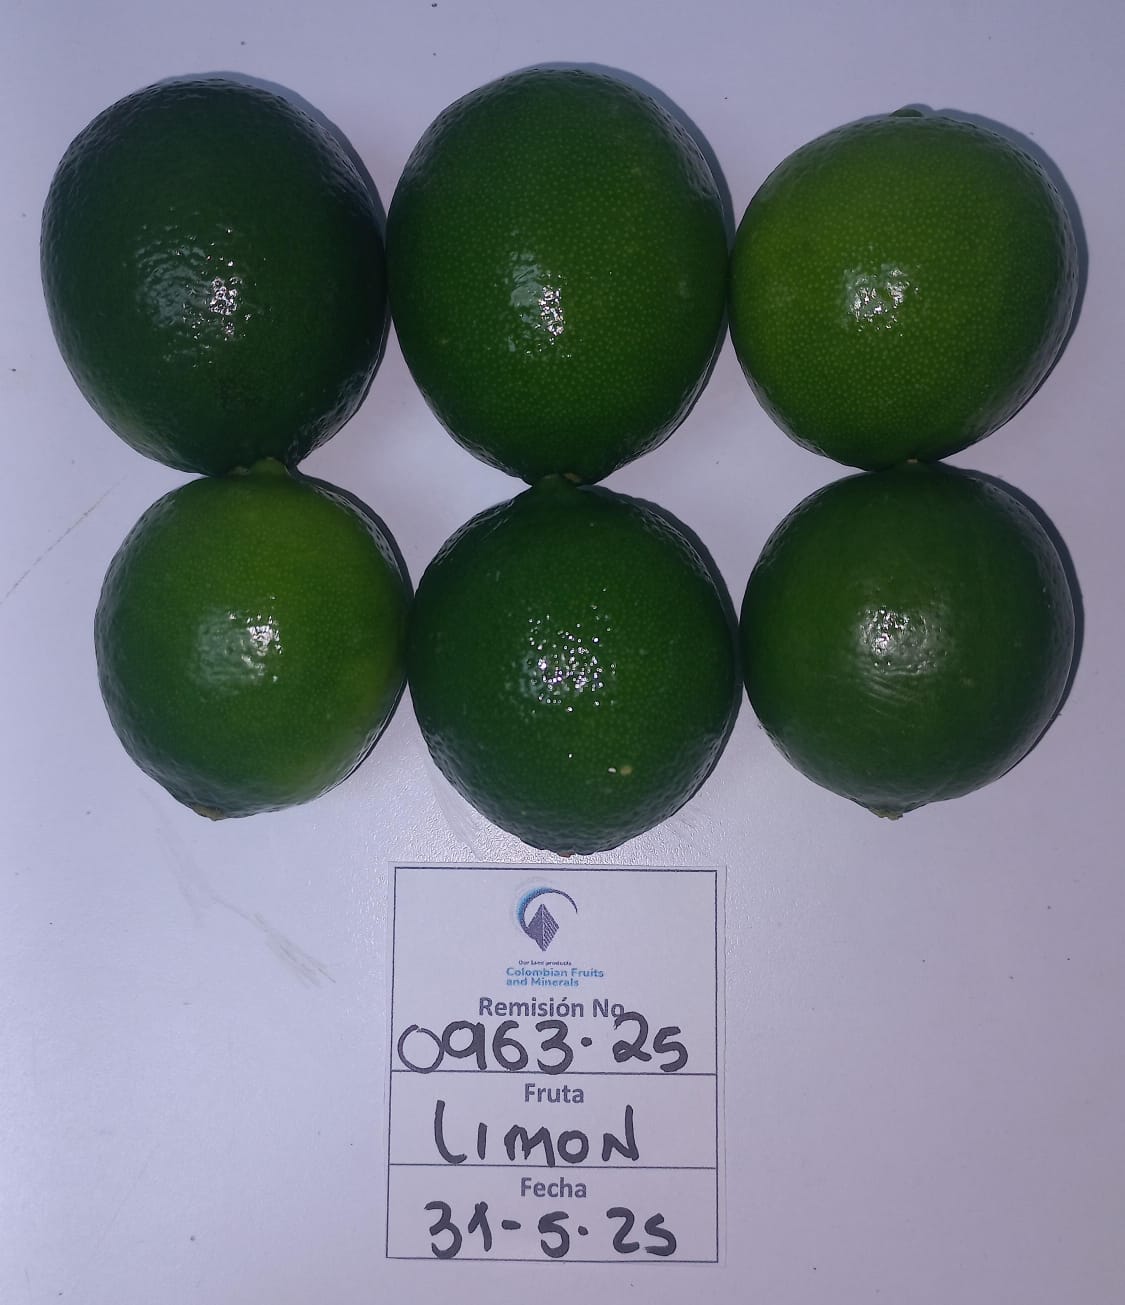 Our Land products
Colombian Fruits
and Minerals
Remisión No
0963.25
Fruta
LIMON
Fecha
31-5.25